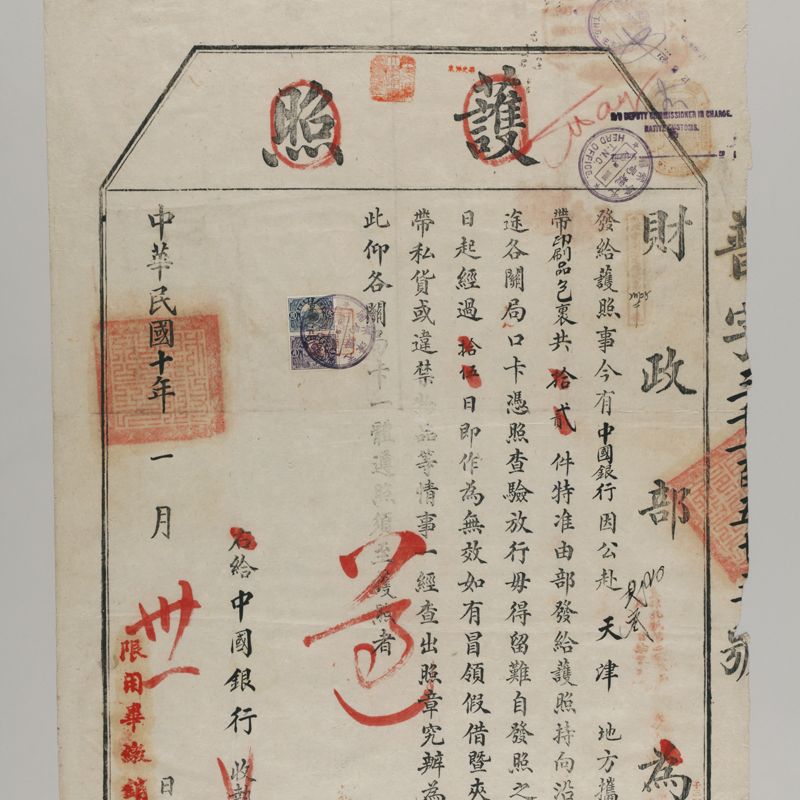 護照
財政部為
發給護照事今有中國銀行因公赴天津地方攜
帶印刷品包裹共拾貳件特准由部發給護照持向沿
途各關局口卡憑照查驗放行毋得留難自發照之
日起經過拾伍日即作為無效如有冒領假借暨夾
帶私貨或違禁物品等情事一經查出照章究辦為
此仰各關局卡一體遵照須至護照者
右給中國銀行收執
中華民國十年一月卅一日
限用畢繳銷
遵
D/O DEPUTY COMMISSIONER IN CHARGE.
NATIVE CUSTOMS.
HEAD OFFICE